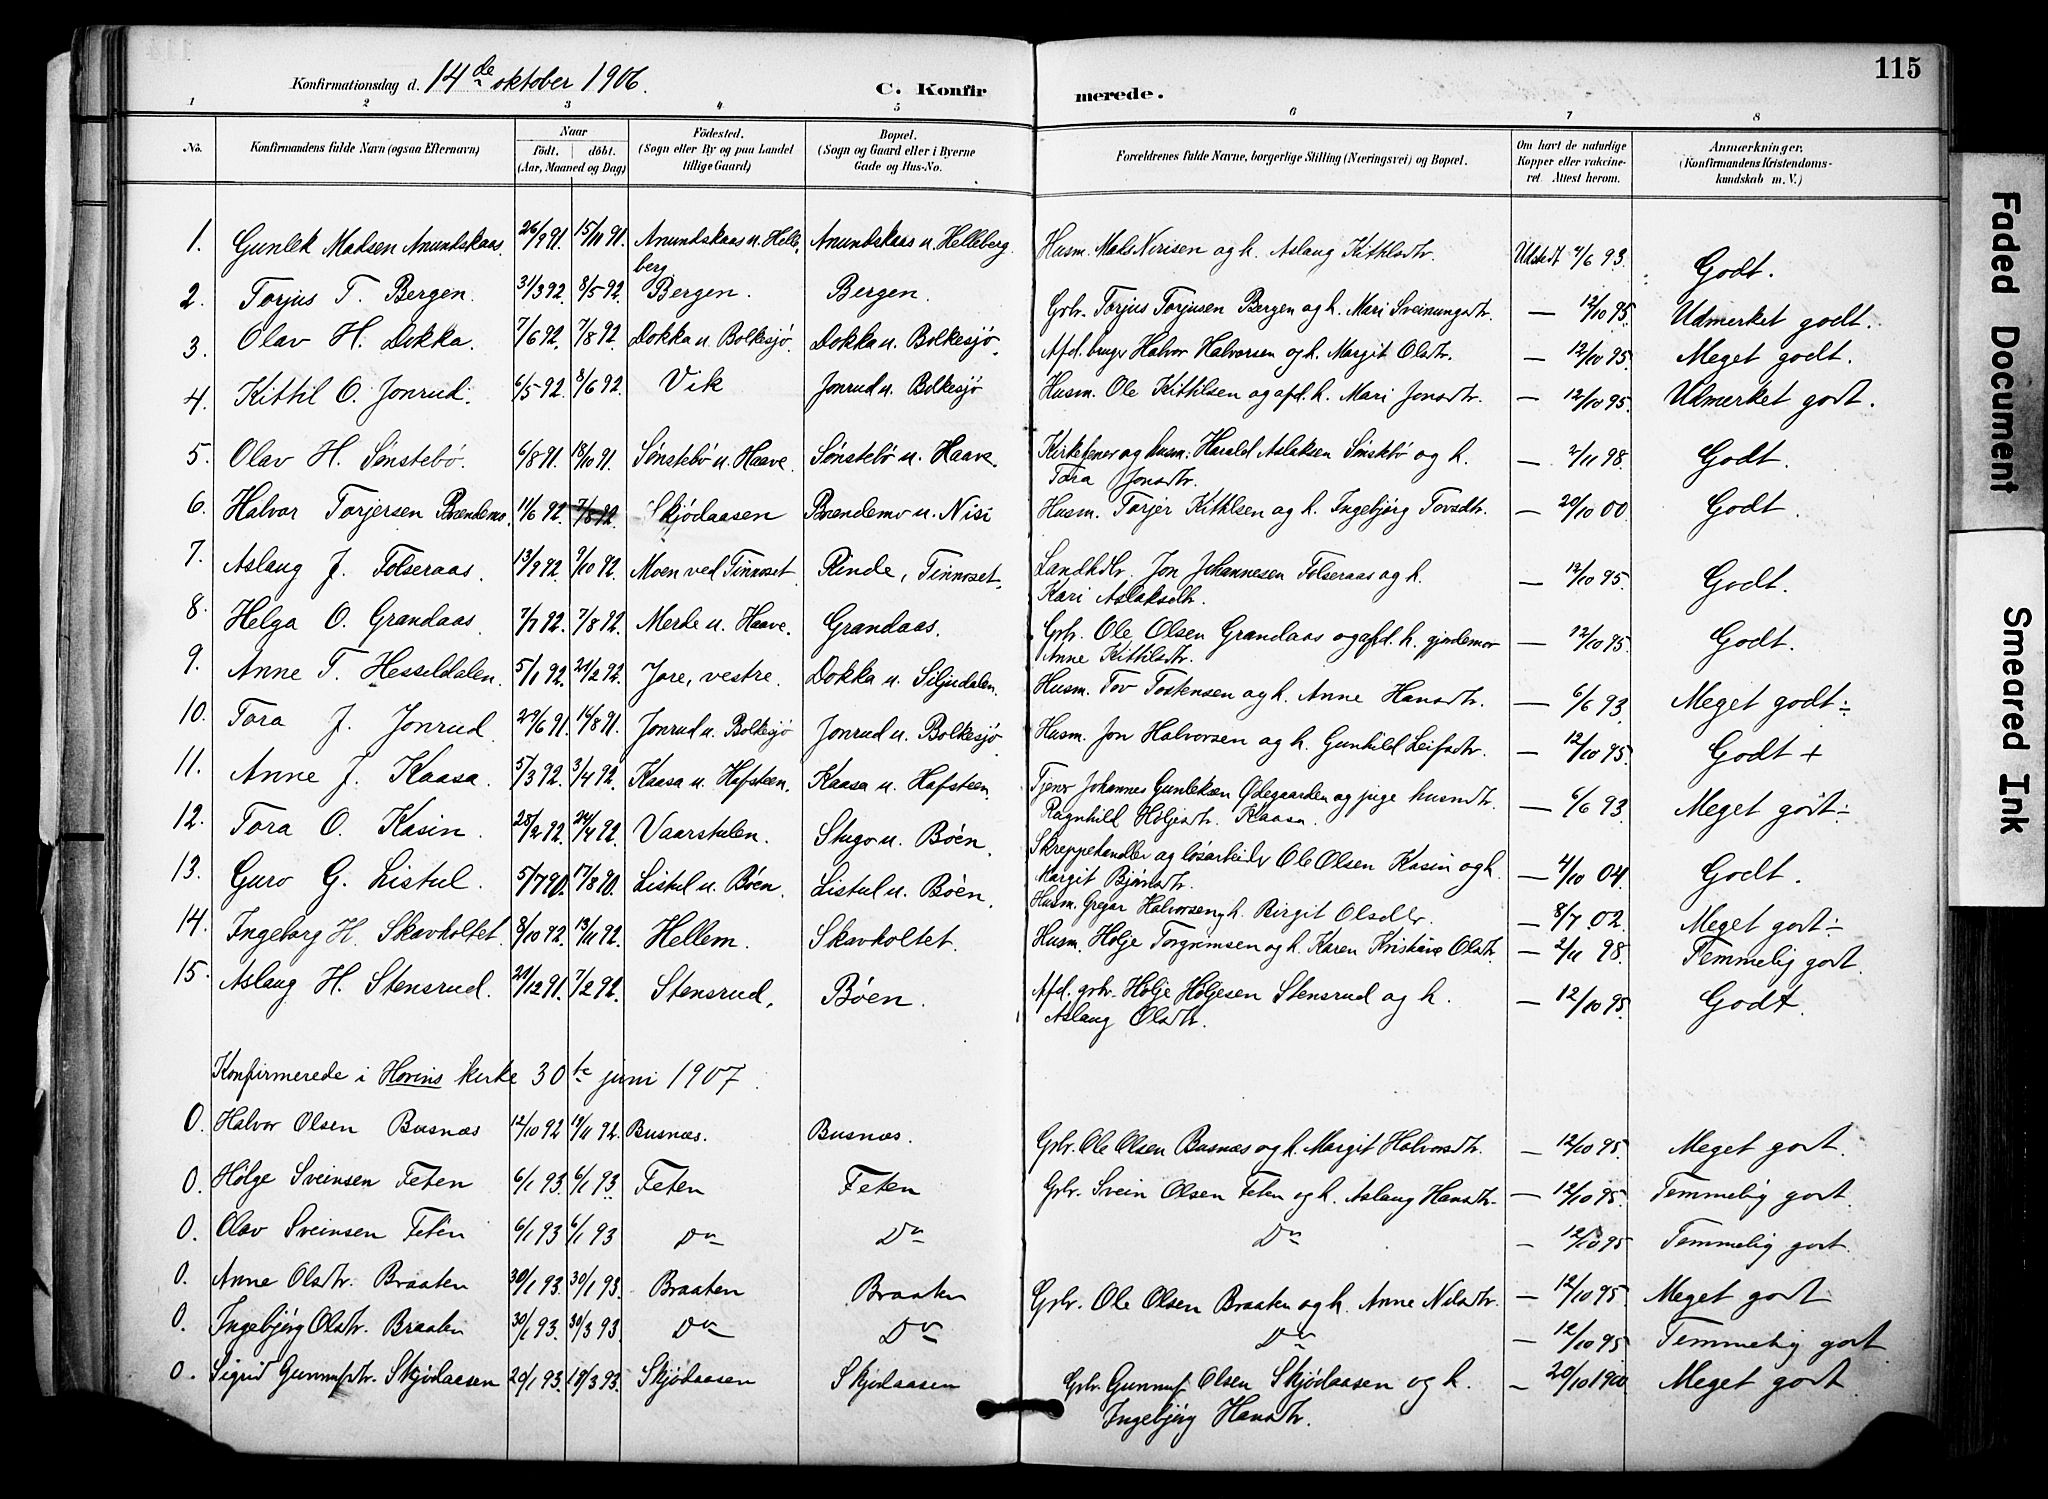 115
Konfirmationsdag d. 14de oktober 1906.
C. Konfirmerede.
1 2 3 4 5 6 7 8
No. Konfirmandens fulde Navn (ogsaa Efternavn) Naar födt. döbt. (Aar, Maaned og Dag) Födested. (Sogn eller By og paa Landet tillige Gaard) Bopæl. (Sogn og Gaard eller i Byerne Gade og Hus-No. Forældrenes fulde Navne, borgerlige Stilling (Næringsvei) og Bopæl. Om havt de naturlige Kopper eller vakcineret. Attest herom. Anmærkninger. (Konfirmandens Kristendomskundskab m. V.)
1. Gunlek Madsen Anundskaas. 26/9 91. 15/11 91. Anundskaas u. Helleberg Anundskaas u. Helleberg. Husm. Mads Nirisen og h. Aslaug Kittilsdtr. Udstedt 4/6 93. Godt.
2. Torjus T. Bergen. 31/3 92. 8/5 92. Bergen. Bergen. Gbr. Torjus Torjusen Bergen og h. Mari Sveinungsdtr. — 12/10 95. Udmerket godt.
3. Olav H. Dokka. 7/6 92. 7/8 92. Dokka u. Bolkesjö. Dokka u. Bolkesjö. Afd. bruger Halvor Halvorsen og h. Margit Olsdtr. — 12/10 95. Meget godt.
4. Kittil O. Jonrud. 6/5 92. 8/6 92. Vik Jonrud u. Bolkesjö Husm. Ole Kittilsen og afd. h. Mari Jonsdtr. — 12/10 95. Udmerket godt.
5. Olav H. Sønstebö. 6/8 91. 18/10 91. Sønstebö u. Haave. Sønstebö u. Haave. Kirketjener og husm. Harald Aslaksen Sønstebö og h. Tora Jonsdtr. — 2/11 98. Godt.
6. Halvor Torjersen Brændemo. 11/6 92. 7/8 92. Skjödaasen Brændemo u. Nisi Husm. Torjer Kittilsen og h. Ingebjørg Tovsdtr. — 20/10 00. Godt.
7. Aslaug J. Folseraas. 13/9 92. 9/10 92. Moen ved Tinnoset Rinde, Tinnoset. Landhdlr. Jon Johannesen Folseraas og h. Kari Aslaksdtr. — 12/10 95. Godt.
8. Helga O. Grandaas. 7/7 92. 7/8 92. Merde u. Haave. Grandaas. Gbr. Ole Olsen Grandaas og afd. h. gjordemor Anne Kittilsdtr. — 12/10 95. Godt.
9. Anne T. Hesseldalen. 5/1 92. 21/2 92. Jore, vestre. Dokka u. Siljudalen. Husm. Tov Tostensen og h. Anne Hansdtr. — 6/6 93. Meget godt ÷
10. Tora J. Jonrud. 29/6 91. 14/8 91. Jonrud u. Bolkesjö Jonrud u. Bolkesjö. Husm. Jon Halvorsen og h. Gunhild Leifsdtr. — 12/10 95. Godt +
11. Anne J. Kaasa. 5/3 92. 3/4 92. Kaasa u. Hafsteen. Kaasa u. Hafsteen. Tjener Johannes Gunleksen Ødegaarden og pige husmdtr. Ragnhild Høljesdtr. Kaasa. — 6/6 93. Meget godt ÷
12. Tora O. Kasin. 28/2 92. 24/4 92. Vaarstulen. Stugo u. Böen. Skreppehandler og løsarbeider Ole Olsen Kasin og h. Margit Bjørnsdtr. — 4/10 04. Godt.
13. Guro G. Listul. 5/7 90. 17/8 90. Listul u. Böen. Listul u. Böen. Husm. Gregar Halvorsen og h. Birgit Olsdtr. — 8/7 02. Meget godt ÷
14. Ingeborg H. Skavholtet. 8/10 92. 13/11 92. Hellem. Skavholtet. Husm. Hølje Torgrimsen og h. Karen Kristine Olsdtr. — 2/11 98. Temmelig godt.
15. Aslaug H. Stensrud. 21/12 91. 7/2 92. Stensrud. Böen. Afd. gbr. Hølje Høljesen Stensrud og h. Aslaug Olsdtr. — 12/10 95. Godt.
Konfirmerede i Hovins kirke 30te juni 1907.
0. Halvor Olsen Busnæs 12/10 92 19/11 92. Busnæs. Busnæs. Gbr. Ole Olsen Busnæs og h. Margit Halvorsdtr. — 12/10 95. Meget godt.
0. Hølge Sveinsen Feten 6/1 93. 6/1 93. Feten Feten Gbr. Svein Olsen Feten og h. Aslaug Hansdtr. — 12/10 95. Temmelig godt.
0. Olav Sveinsen Feten 6/1 93 6/1 93 Do Do Do — 12/10 95 Temmelig godt.
0. Anne Olsdtr. Braaten 30/1 93. 30/1 93. Braaten Braaten Gbr. Ole Olsen Braaten og h. Anne Nilsdtr. — 12/10 95. Meget godt
0. Ingebjörg Olsdtr. Braaten 30/1 93. 30/3 93. Do Do Do — 12/10 95 Temmelig godt
0. Sigrid Gunnufsdtr. Skjödaasen 20/1 93. 19/3 93. Skjödaasen Skjödaasen Gbr. Gunnuf Olsen Skjödaasen og h. Ingebjörg Hansdtr. — 20/10 1900 Meget godt
Faded Document
Smeared Ink